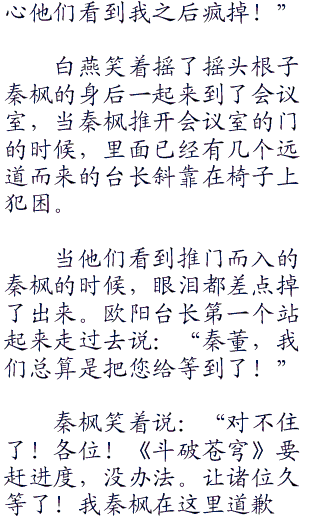 心他们看到我之后疯掉！”
白燕笑着摇了摇头根子
秦枫的身后一起来到了会议
室，当秦枫推开会议室的门
的时候，里面已经有几个远
道而来的台长斜靠在椅子上
犯困。
当他们看到推门而入的
秦枫的时候，眼泪都差点掉
了出来。欧阳台长第一个站
起来走过去说：“秦董，我
们总算是把您给等到了！”
秦枫笑着说：“对不住
了！各位！《斗破苍穹》要
赶进度，没办法。让诸位久
等了！我秦枫在这里道歉